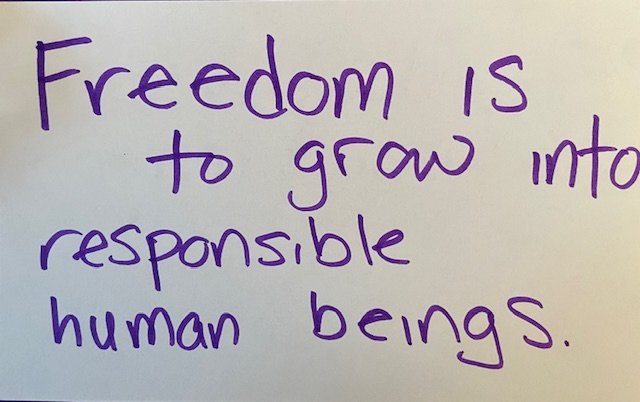 Freedom is
to grow into
responsible
human beings.